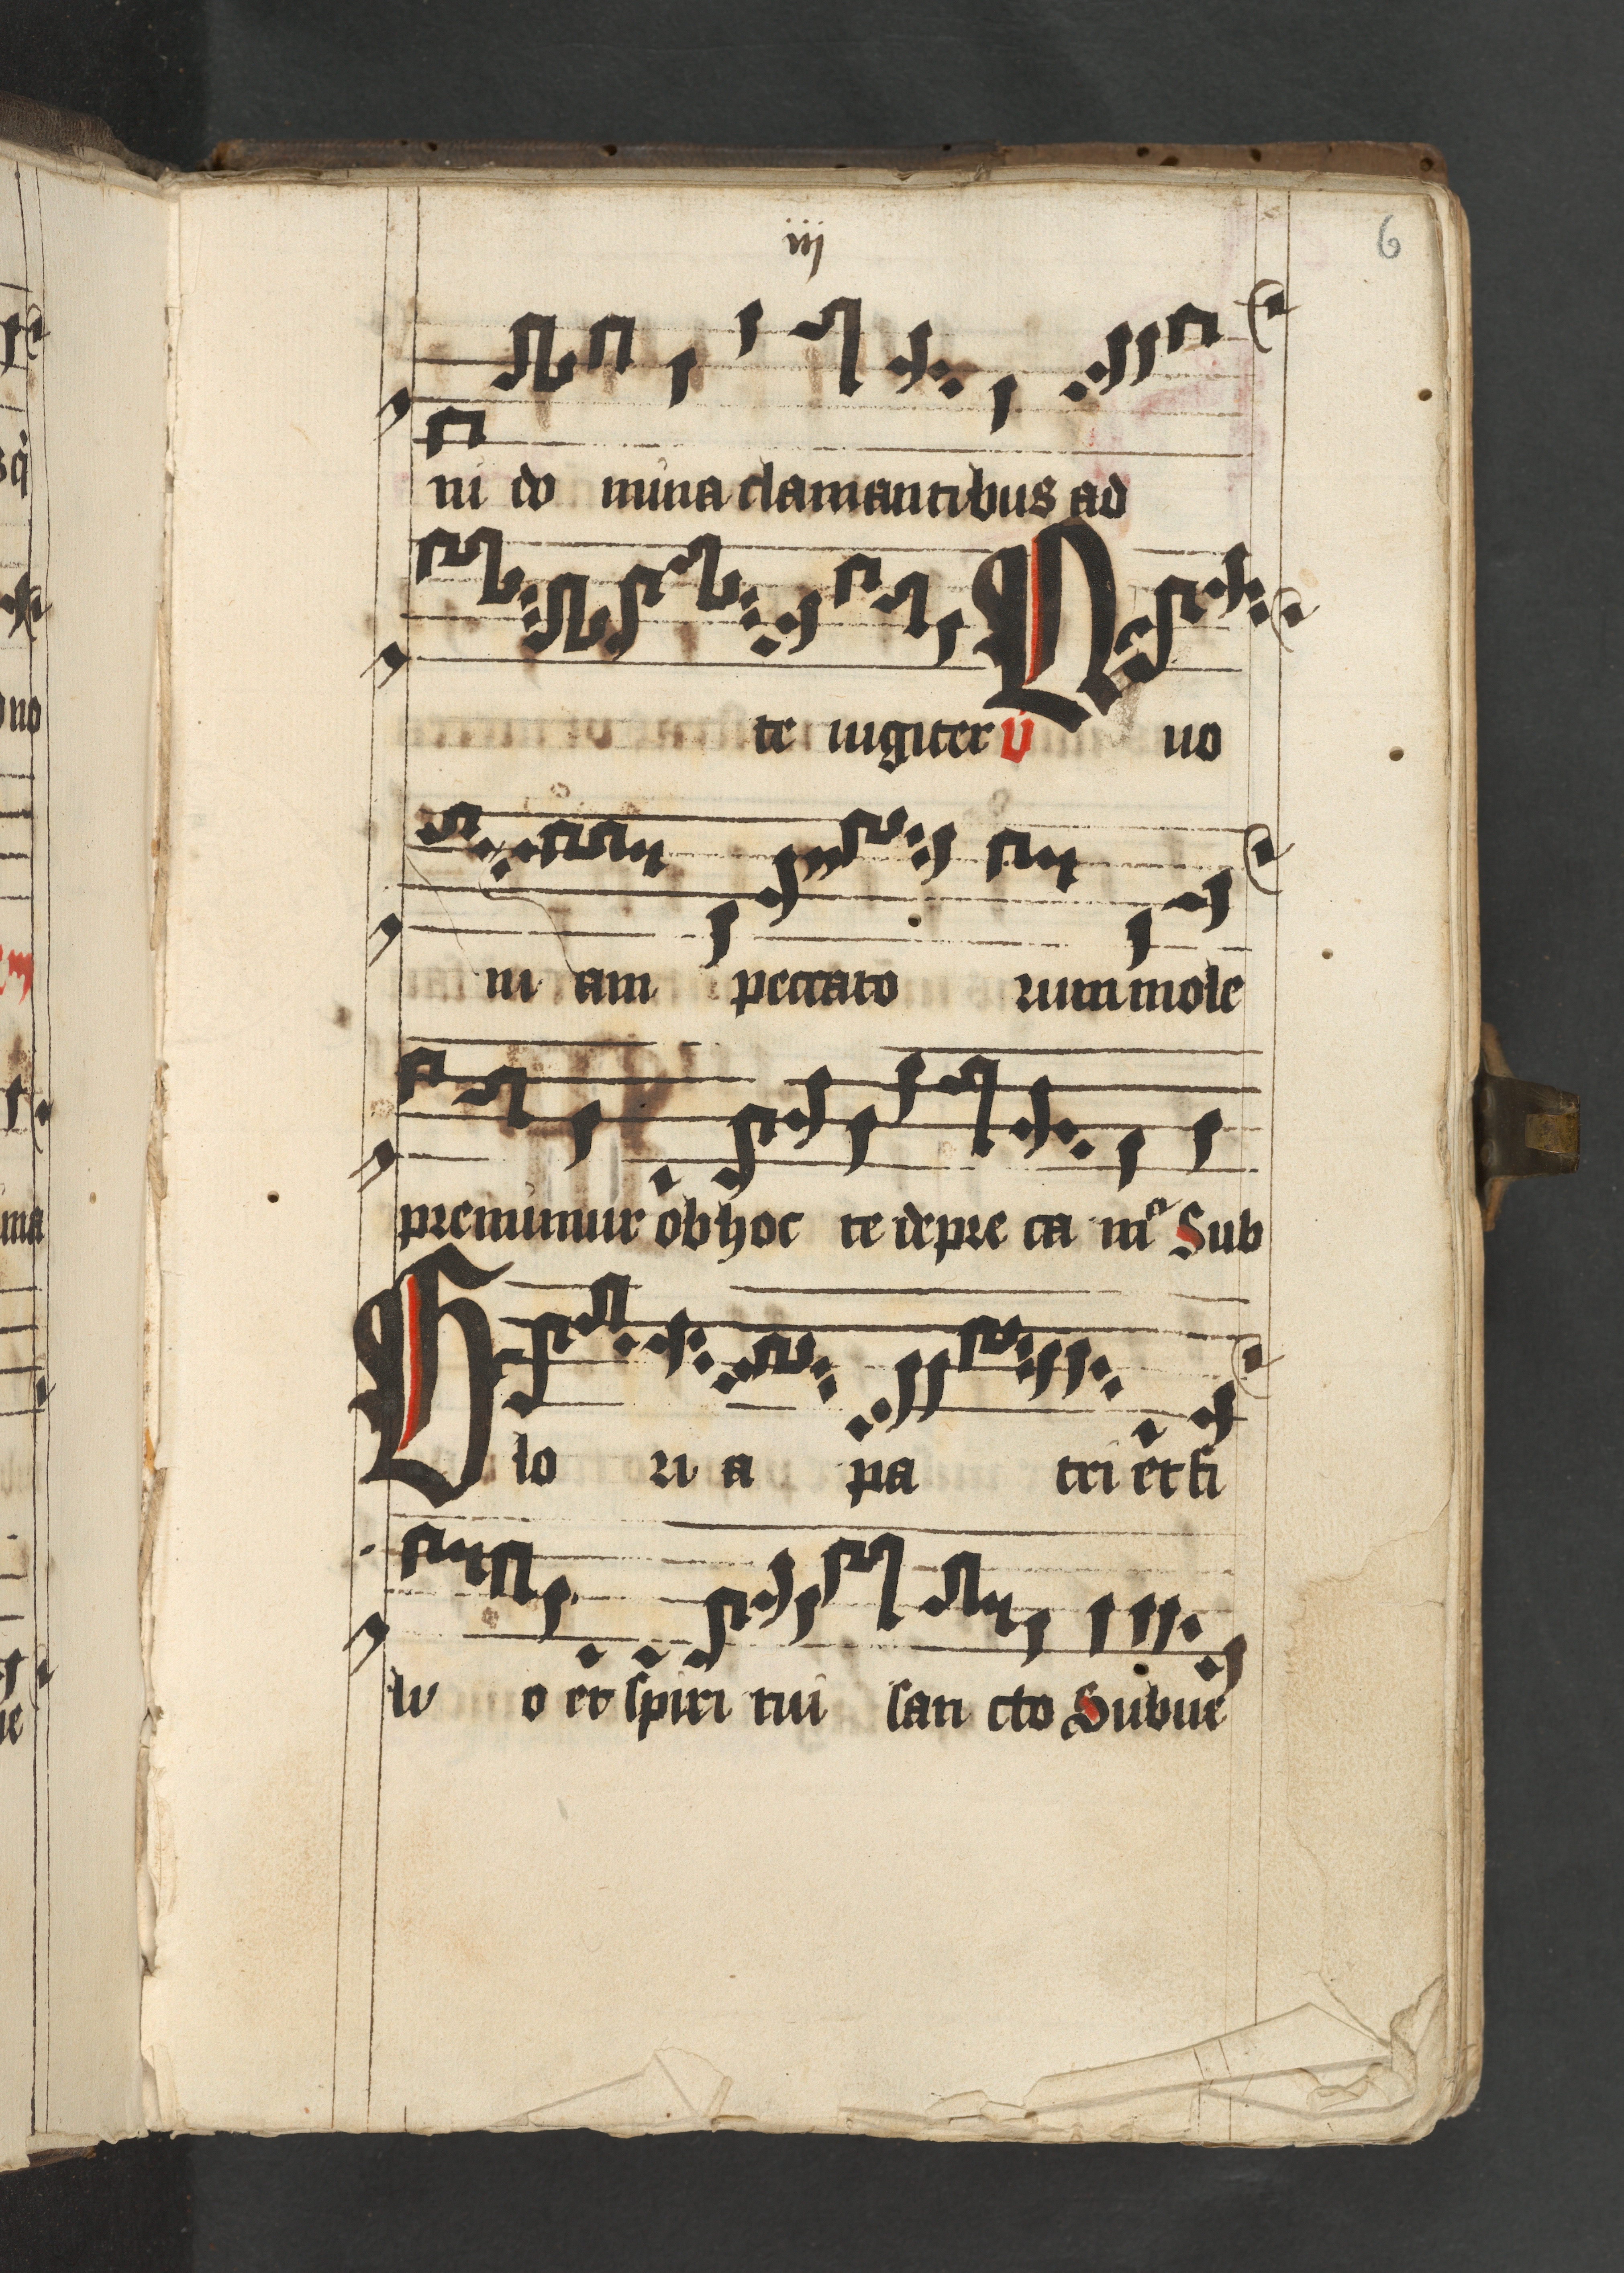 iij
6
ni do mina clamantibus ad
te iugiter V Quo
ni am peccato rum mole
premimur ob hoc te depre ca mꝰ Sub
Glo ri a pa tri et fi
li o et spiri tui san cto Subue